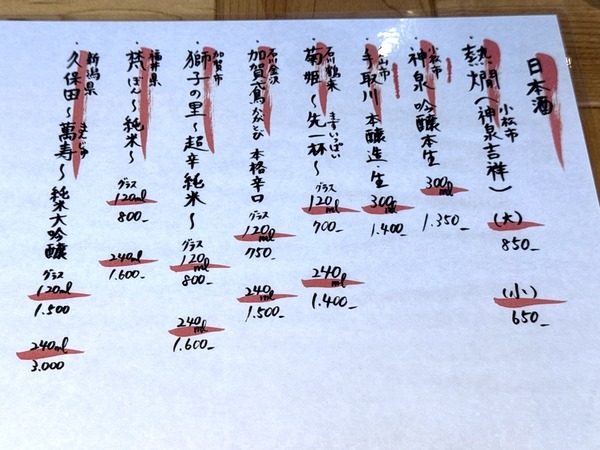 日本酒
・熱燗(神泉吉祥)
小松市
(大)
850-
(小)
650-
・神泉 吟醸本生
小松市
300ml
1.350-
・手取川 本醸造・生
白山市
300ml
1.400-
・菊姫〜先一杯〜
石川鶴来
まずいっぱい
グラス
120ml
700-
240ml
1.400-
・加賀鳶 本格辛口
石川金沢
かがとび
グラス
120ml
750-
240ml
1.500-
・獅子の里〜超辛純米〜
加賀市
グラス
120ml
800-
240ml
1.600-
・梵〜純米〜
福井県
ぼん
グラス
120ml
800-
240ml
1.600-
・久保田〜萬寿〜純米大吟醸
新潟県
まんじゅ
グラス
120ml
1.500
240ml
3.000